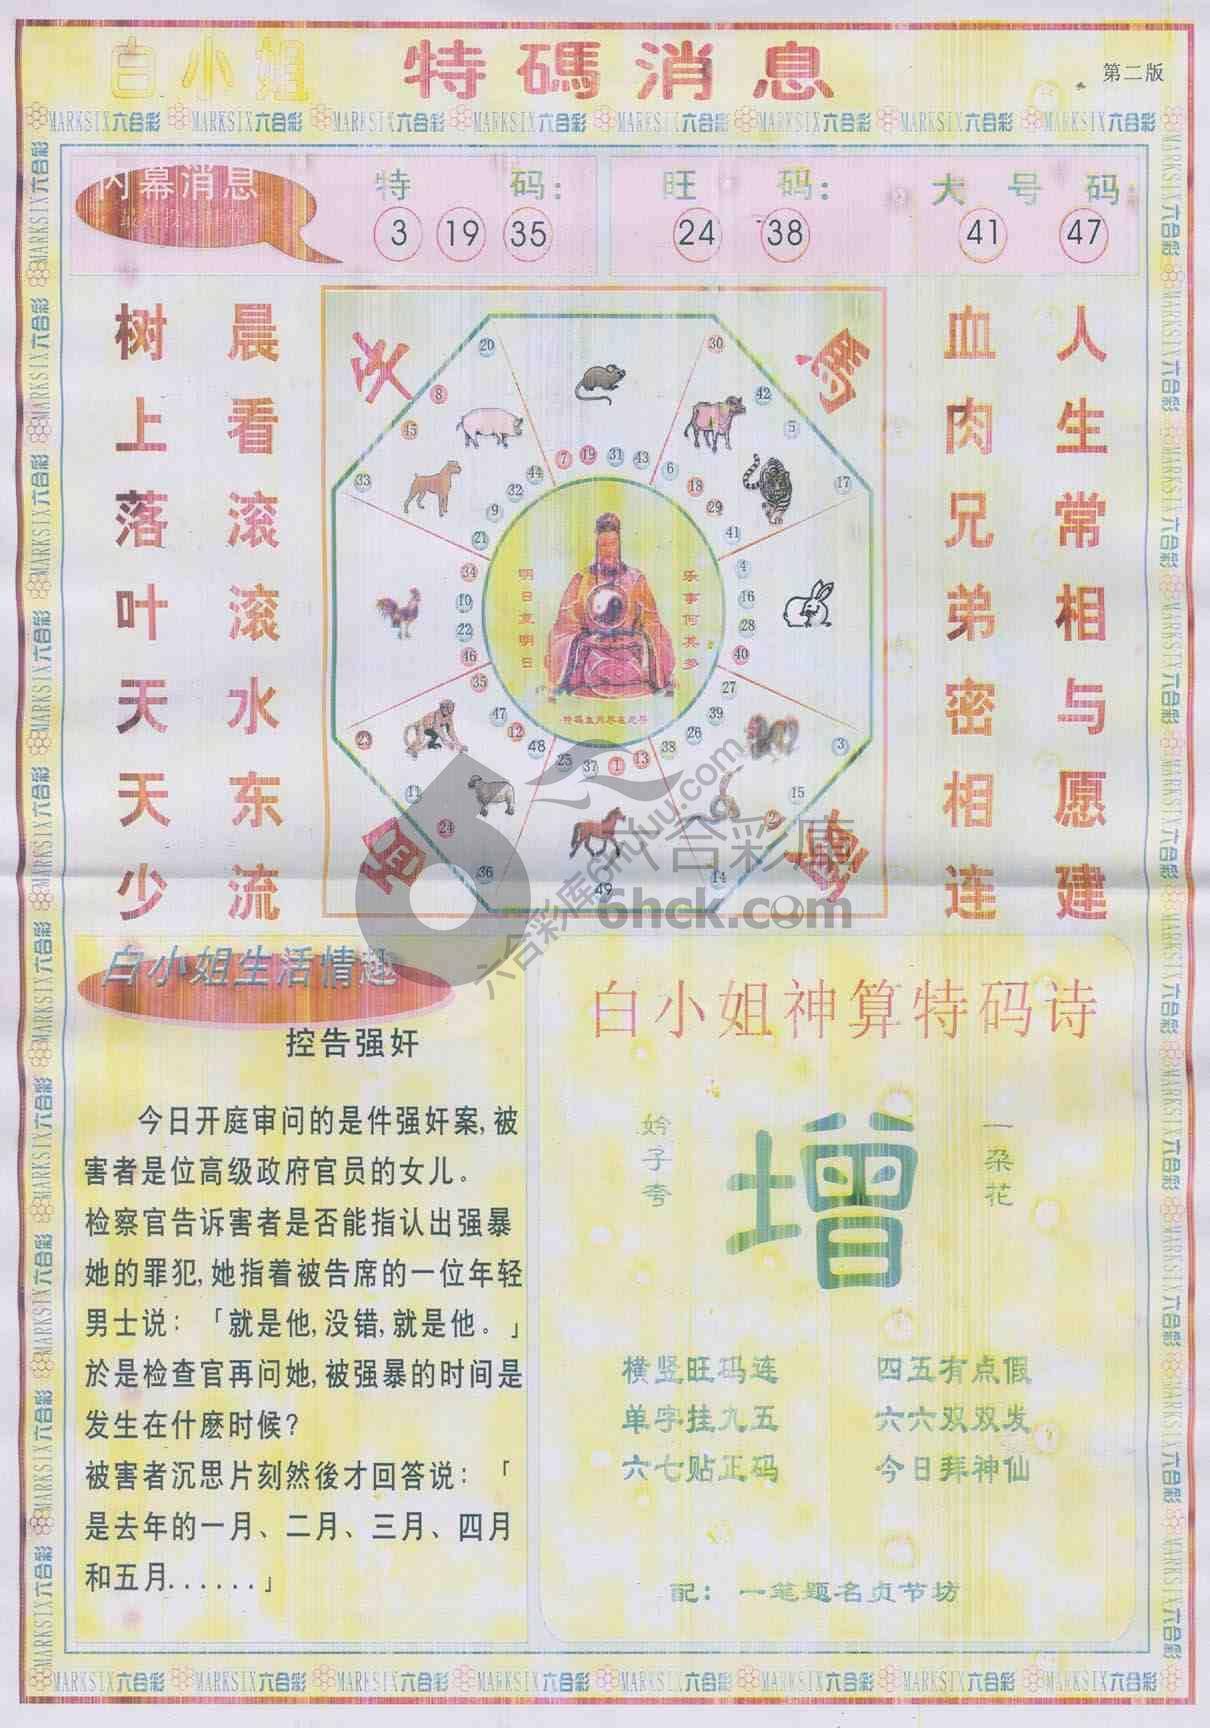 白小姐 特碼消息 第二版
MARKSIX六合彩 MARKSIX六合彩 MARKSIX六合彩 MARKSIX六合彩 MARKSIX六合彩 MARKSIX六合彩 MARKSIX六合彩 MARKSIX六合彩
内幕消息
特码:
3 19 35
旺码:
24 38
大号码:
41 47
人生常相与愿建
血肉兄弟密相连
晨看滚滚水东流
树上落叶天天少
20 30
8 42
45 5
33 17
7 19 31 43
44 6
32 18
9 29
21 41
34 4
10 16
22 28
46 40
35 27
47 39
12 26
48 38
25 37 1 13
23 3
11 15
24 2
36 14
49
乐事何其多
明日复明日
六合彩库
6hck.com
六合彩库6htuu.com
白小姐生活情趣
控告强奸
今日开庭审问的是件强奸案,被
害者是位高级政府官员的女儿。
检察官告诉害者是否能指认出强暴
她的罪犯,她指着被告席的一位年轻
男士说:「就是他,没错,就是他。」
於是检查官再问她,被强暴的时间是
发生在什麽时候?
被害者沉思片刻然後才回答说:「
是去年的一月、二月、三月、四月
和五月......」
白小姐神算特码诗
一朵花
增
妗子夸
横竖旺码连 四五有点假
单字挂九五 六六双双发
六七贴正码 今日拜神仙
配: 一笔题名贞节坊
MARKSIX六合彩 MARKSIX六合彩 MARKSIX六合彩 MARKSIX六合彩 MARKSIX六合彩 MARKSIX六合彩 MARKSIX六合彩 MARKSIX六合彩